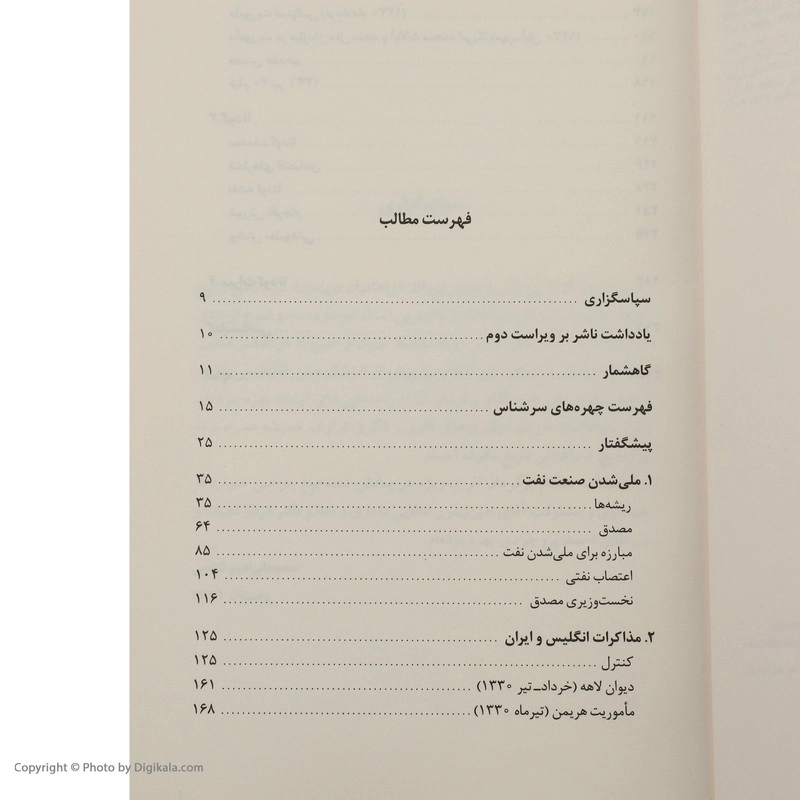 فهرست مطالب
سپاسگزاری ........ ۹
یادداشت ناشر بر ویراست دوم ........ ۱۰
گاهشمار ........ ۱۱
فهرست چهره‌های سرشناس ........ ۱۵
پیشگفتار ........ ۲۵
۱. ملی‌شدن صنعت نفت ........ ۳۵
ریشه‌ها ........ ۳۵
مصدق ........ ۶۴
مبارزه برای ملی‌شدن نفت ........ ۸۵
اعتصاب نفتی ........ ۱۰۴
نخست‌وزیری مصدق ........ ۱۱۶
۲. مذاکرات انگلیس و ایران ........ ۱۲۵
کنترل ........ ۱۲۵
دیوان لاهه (خرداد‌ـ تیر ۱۳۳۰) ........ ۱۶۱
مأموریت هریمن (تیرماه ۱۳۳۰) ........ ۱۶۸
Copyright © Photo by Digikala.com